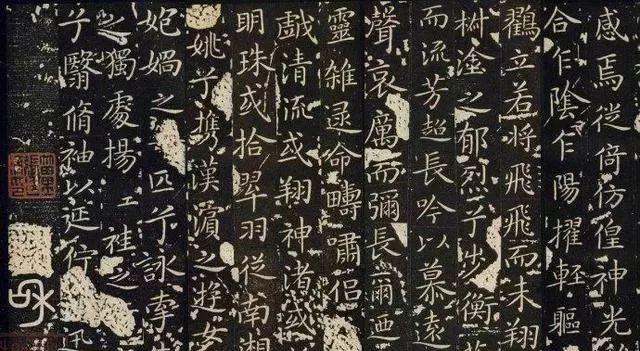 感焉徙倚仿偟神光
合乍陰乍陽擢輕軀
鸖立若將飛飛而未翔
椒塗之郁烈兮步衡
而流芳超長吟以慕遠
聲哀厲而彌長爾迺
靈雜遝命疇嘯侶
戲清流或翔神渚或
明珠或拾翠羽從南湘
姚兮攜漢濱之遊女
媧之匹兮詠牽
之獨處揚袿之
兮翳脩袖以延佇迅